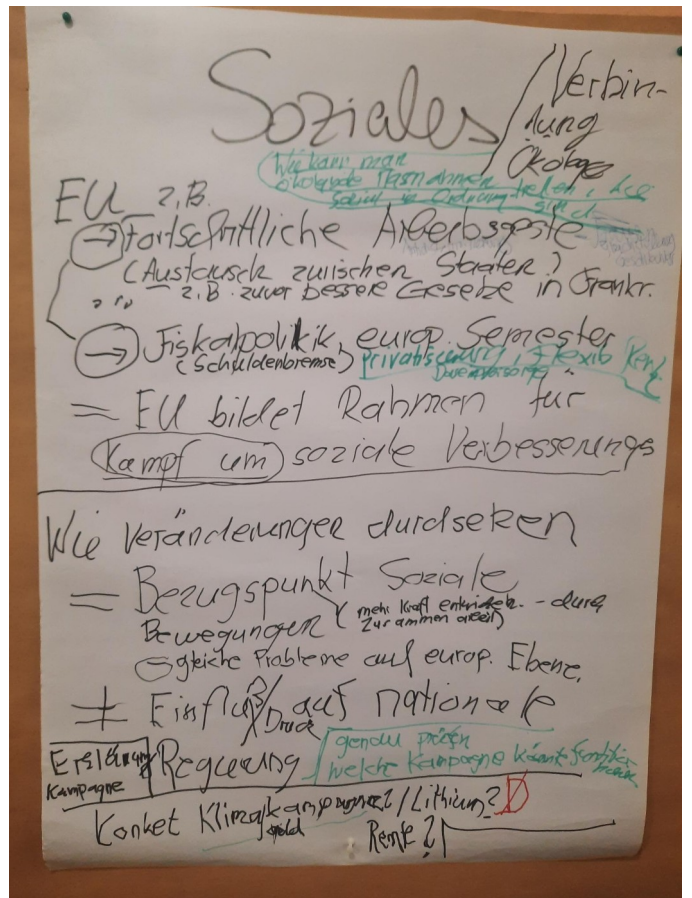 Soziales
/ Verbin-
dung
Ökologe
Wie kann man
ökologische Masnahmen treffen, die
Sozial in Ordnung sind
EU z.B.
→ Fortschrittliche Arbeitsgeste
(Austausch zwischen Staaten)
z.B. zuvor bessere Gesetze in Frankr.
→ Fiskalpolitik, europ. Semester
(Schuldenbremse) privatisierung, Flexib
= EU bildet Rahmen für
Kampf um soziale Verbesserungs
Wie Veränderungen durchsetzen
= Bezugspunkt Soziale
Bewegungen (mehr Kraft entwickeln - durch
Zusammenarbeit)
gleiche Probleme auf europ. Ebene.
≠ Einfluß/Druck auf nationale
Regierung
Erklärung
Kampagne
genau prüfen
welche Kampagne könnte
Konket Klimakampagne? / Lithium?
geld Rente?